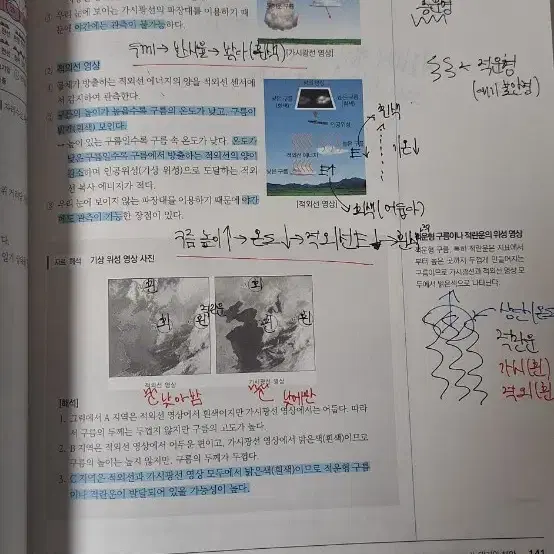 우리 눈에 보이는 가시광선의 파장대를 이용하기 때
문에 야간에는 관측이 불가능하다.
[가시광선 영상]
두께↑→ 반사율↑→ 밝다(흰색)
(2) 적외선 영상
물체가 방출하는 적외선 에너지의 양을 적외선 센서에
서 감지하여 관측한다.
구름의 높이가 높을수록 구름의 온도가 낮고, 구름이
밝게(흰색) 보인다.
→ 높이 있는 구름일수록 구름 속 온도가 낮다. 온도가
낮은 구름일수록 구름에서 방출하는 적외선의 양이
감소하며 인공위성(기상 위성)으로 도달하는 적외
선 복사 에너지가 적다.
우리 눈에 보이지 않는 파장대를 이용하기 때문에 야간
에도 관측이 가능한 장점이 있다.
적외선 영상
높은 구름
(흰색)
낮은 구름
(회색)
인공위성
높은 구름
적외선 에너지
낮은 구름
[적외선 영상]
흰색
E↓
기온↓
E↑
회색(어둡다)
구름 높이↑→ 온도↓→ 적외선E↓→ 흰색
적운형
적운형 구름이나 적란운의 위성 영상
적운형 구름, 특히 적란운은 지표에서
부터 높은 곳까지 두껍게 만들어지는
구름이므로 가시광선과 적외선 영상 모
두에서 밝은색으로 나타난다.
적란운
가시(흰)
적외(흰)
자료 해석 기상 위성 영상 사진
흰
회
흰
적란운
회
흰
흰
적외선 영상
가시광선 영상
[해석]
1. 그림에서 A 지역은 적외선 영상에서 흰색이지만 가시광선 영상에서는 어둡다. 따라
서 구름의 두께는 두껍지 않지만 구름의 고도가 높다.
2. B 지역은 적외선 영상에서 어두운 편이고, 가시광선 영상에서 밝은색(흰색)이므로
구름의 높이는 높지 않지만, 구름의 두께가 두껍다.
3. C 지역은 적외선과 가시광선 영상 모두에서 밝은색(흰색)이므로 적운형 구름
이나 적란운이 발달되어 있을 가능성이 높다.
141